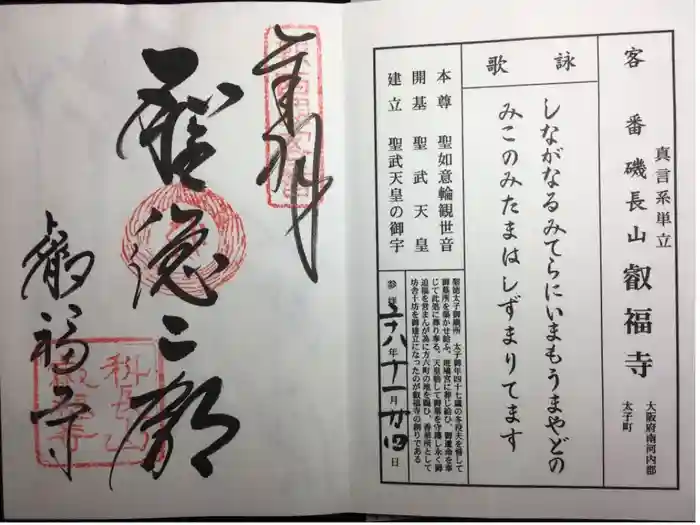 客番 磯長山 叡福寺
真言系単立
大阪府南河内郡
太子町
詠歌
しながなるみてらにいまもうまやどの
みこのみたまはしずまりてます
本尊 聖如意輪観世音
開基 聖武天皇
建立 聖武天皇の御宇
聖徳太子御廟所 太子御年四十七歳の冬役夫を督して
御墓所を築かせ給ふ。斑鳩宮に葬じ給ひ、御遺命を奉
じて此処に葬り奉る。天皇勅して御墓を守護し永く御
追福を営まんが為に方六町の地を賜ひ、香華所として
坊舎十坊を御建立になったのが叡福寺の創りである
参拝 二十八年十一月廿四日
奉拝
聖徳二郎
叡福寺